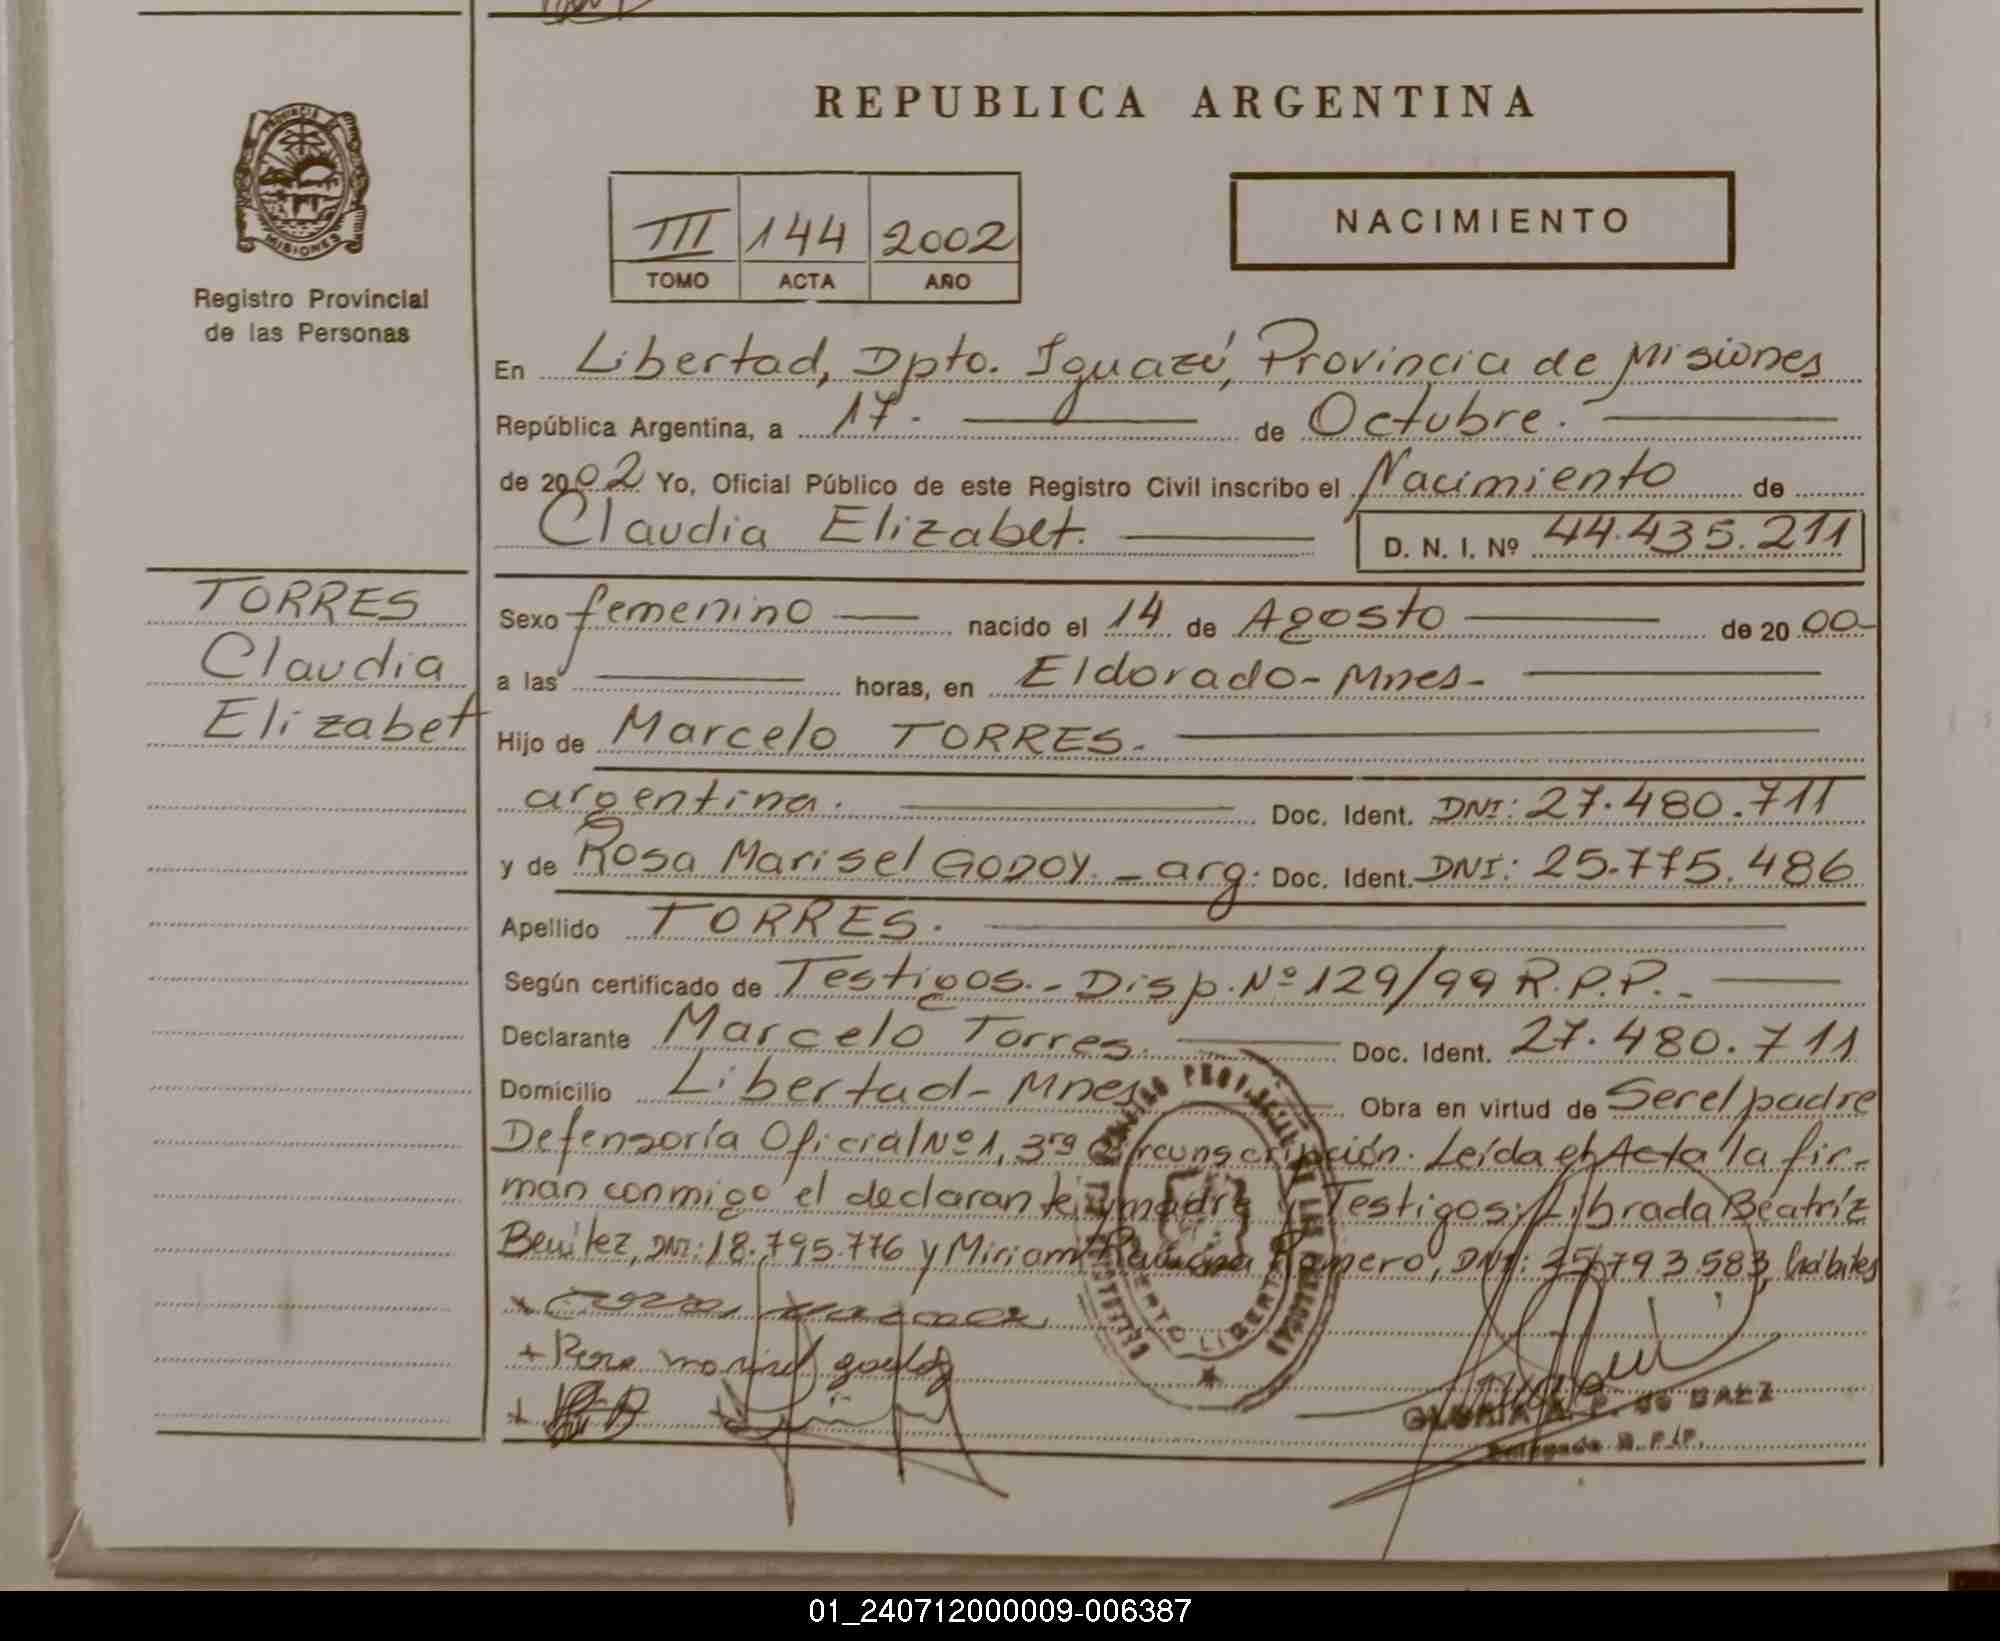 REPUBLICA ARGENTINA
PROVINCIA DE
MISIONES
Registro Provincial
de las Personas
III 144 2002
TOMO ACTA AÑO
NACIMIENTO
En Libertad, Dpto. Iguazú, Provincia de Misiones
República Argentina, a 17. de Octubre.
de 2002 Yo, Oficial Público de este Registro Civil inscribo el Nacimiento de
Claudia Elizabet. D. N. I. Nº 44.435.211
TORRES
Claudia
Elizabet
Sexo femenino nacido el 14 de Agosto de 2000-
a las horas, en Eldorado-Mnes-
Hijo de Marcelo TORRES.
argentina. Doc. Ident. DNI: 27.480.711
y de Rosa Marisel GODOY.- arg. Doc. Ident. DNI: 25.775.486
Apellido TORRES.
Según certificado de Testigos.- Disp. Nº 129/99 R.P.P.-
Declarante Marcelo Torres. Doc. Ident. 27.480.711
Domicilio Libertad-Mnes Obra en virtud de Ser el padre
Defensoría Oficial Nº 1, 3ra Circunscripción. Leída el Acta la fir-
man conmigo el declarante, y madre y Testigos: Librada Beatríz
Benitez, DNI: 18.795.776 y Miriam Ramona Romero, DNI: 25.793.583, hábiles
PUERTO LIBERTAD
GLORIA P. de BAEZ
Delegada R.P.P.
01_240712000009-006387